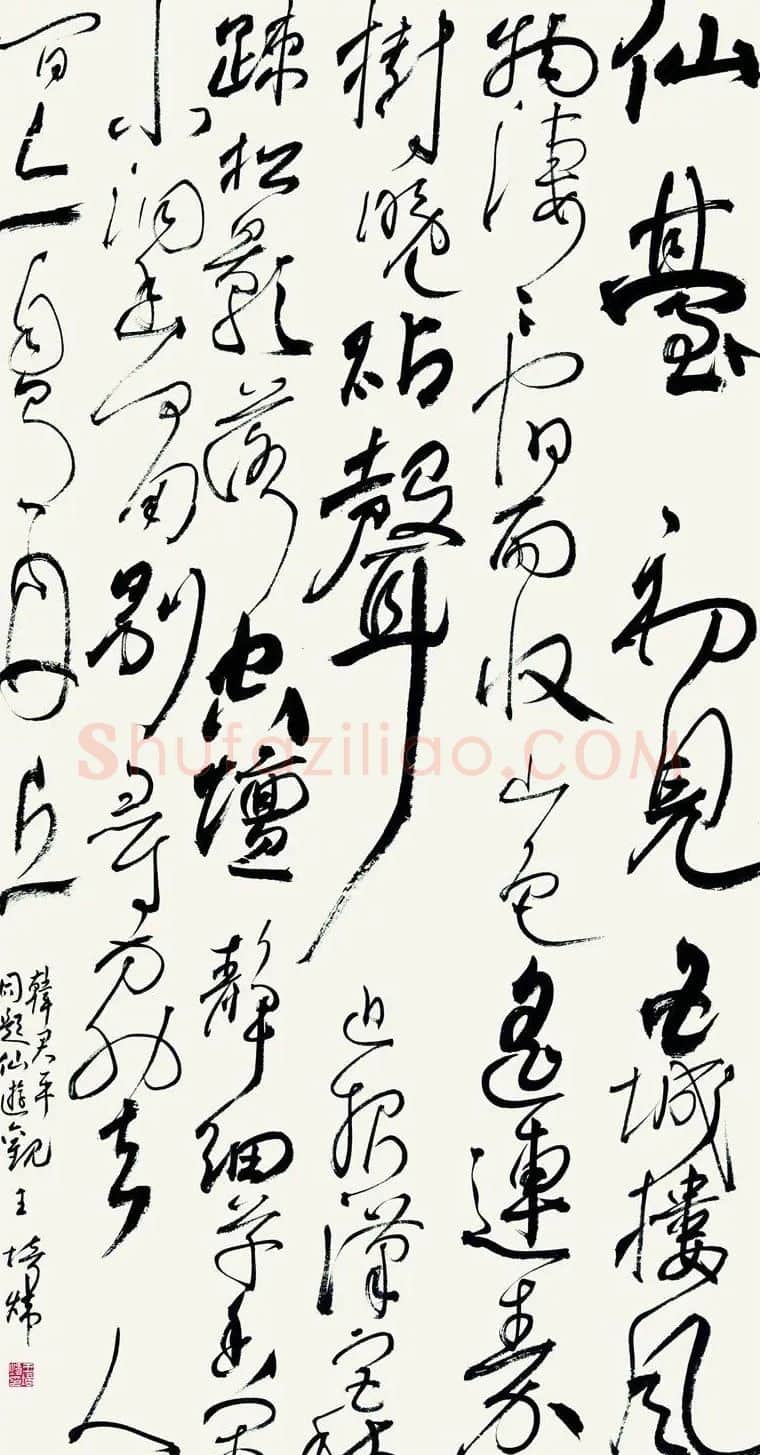 仙臺初見五城樓風
物淒淒宿雨收山色遙連秦
樹晚砧聲近報漢宮秋
疎松影落空壇靜細草香閒
小洞幽何用別尋方外去人
間亦自有丹丘
韓君平
同題仙遊觀 王
Shufaziliao.COM